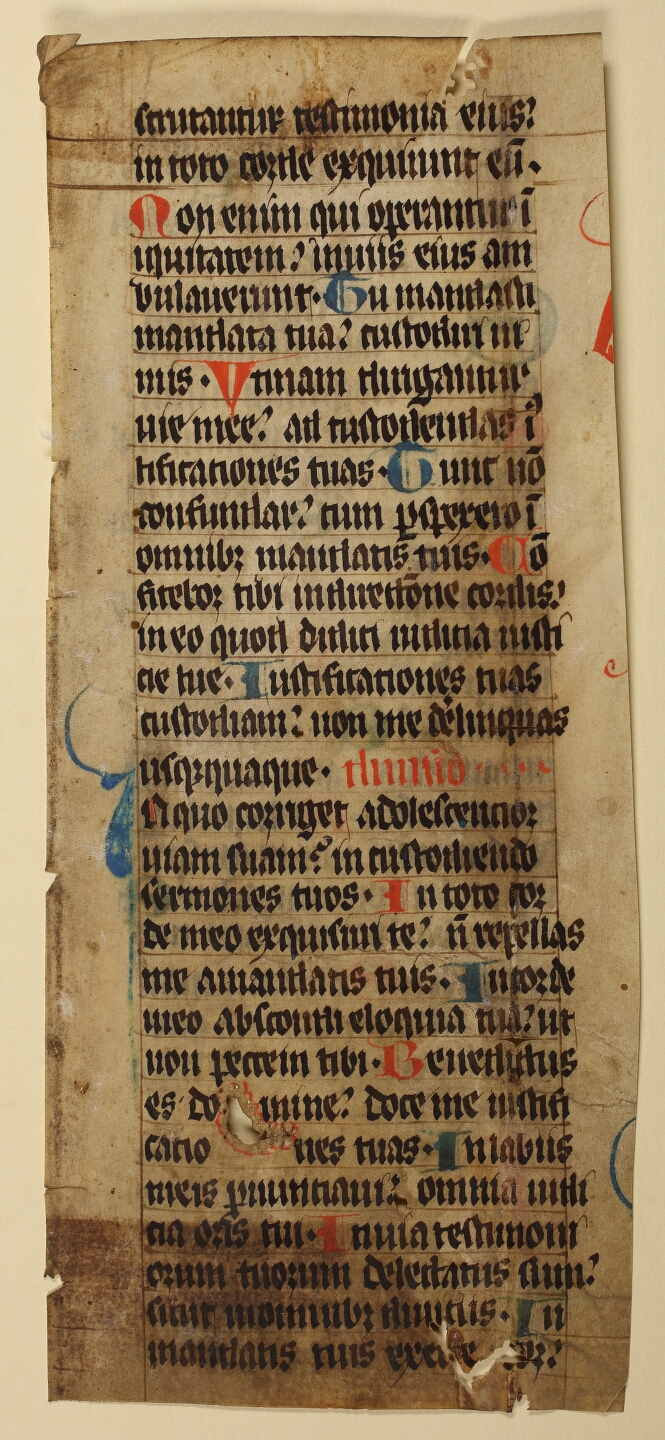 scrutantur testimonia eius?
in toto corde exquirunt eū.
Non enim qui operantur ī
iquitatem? inuiis eius am
bulauerunt. Tu mandasti
mandata tua? custodiri ni
mis. Vtinam dirigantur
uie mee? ad custodiendas i
tificationes tuas. Tunc nō
confundar? cum ꝑspexero ī
omnibꝫ mandatis tuis. Cō
fitebor tibi indirectōne cordis?
in eo quod didici iudicia iusti
cie tue. Iustificationes tuas
custodiam? non me derelinquas
usqꝫquaque. diuisio
In quo corriget adolescencior
uiam suam? in custodiendo
sermones tuos. In toto cor
de meo exquisiui te? n̄ repellas
me amandatis tuis. Incorde
meo abscondi eloquia tua? ut
non peccem tibi. Benedictus
es domine? doce me iustifi
cationes tuas. Inlabiis
meis ꝓnunciaui? omnia iudi
cia oris tui. Inuia testimoni
orum tuorum delectatus sum?
sicut inomnibꝫ diuitiis. In
mandatis tuis exerce or?